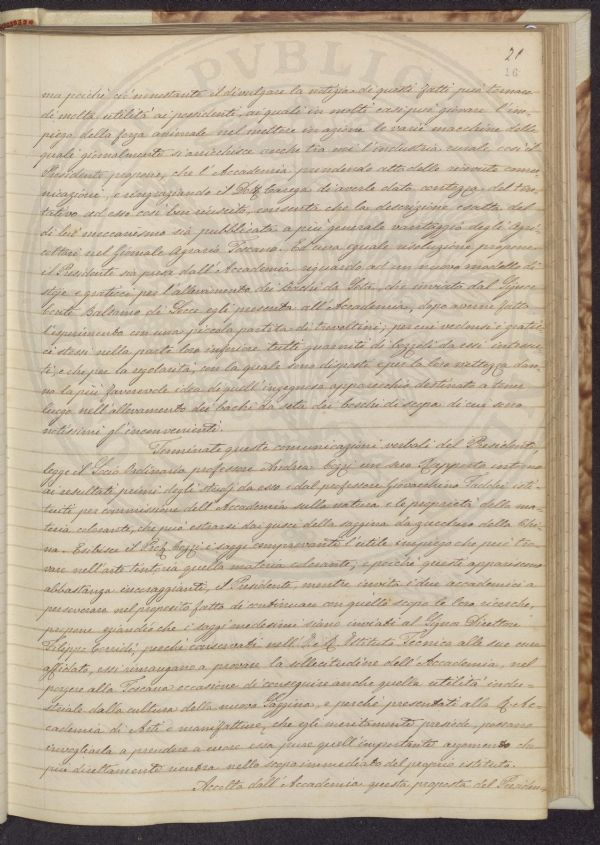 21
16
ma poichè ciò nonostante il divulgare la notizia di questi fatti può tornare
di molta utilità ai possidenti, ai quali in molti casi può giovare l'im-
piego della forza animale nel mettere in azione le varie macchine delle
quali giornalmente si arricchisce anche tra noi l'industria rurale, così il
Presidente propone, che l'Accademia prendendo atto delle ricevute comu-
nicazioni, e ringraziando il di averle data contezza del ten-
tativo ad esso così ben riuscito, consenta che la descrizione esatta del
di lui meccanismo sia pubblicata a più generale vantaggio degli Agri-
cultori nel Giornale Agrario Toscano. Ed una eguale risoluzione propone
il Presidente sia presa dall'Accademia riguardo ad un nuovo modello di
stoje e graticci per l'allevamento dei bachi da Seta, che inviato dal Signor
Conte Balsamo di Lecce egli presenta all'Accademia, dopo averne fatto
l'esperimento con una piccola partita di trevoltini, per cui vedonsi i gratic-
ci stessi nella parte loro inferiore tutti guarniti di bozzoli da essi intessu-
ti, e che per la regolarità, con la quale sono disposti e per la loro nettezza dan-
no la più favorevole idea di quell'ingegnoso apparecchio destinato a tener
luogo nell'allevamento dei bachi da seta dei boschi di scopa di cui sono
notissimi gl'inconvenienti.
Terminate queste comunicazioni verbali del Presidente,
legge il Socio Ordinario professore Andrea Cozzi un suo Rapporto intorno
ai resultati primi degli studj da esso e dal professore Giovacchino Taddei isti-
tuiti per commissione dell'Accademia sulla natura e le proprietà della ma-
teria colorante, che può estrarsi dai gusci della saggina da zucchero della Chi-
na. Esibisce il Cozzi i saggi comprovanti l'utile impiego che può tro-
vare nell'arte tintoria quella materia colorante, e poichè questi appariscono
abbastanza incoraggianti, il Presidente, mentre invita i due accademici a
perseverare nel proposito fatto di continuare con quello scopo le loro ricerche,
propone eziandio che i saggi medesimi siano inviati al Signor Direttore
Filippo Corridi, perchè conservati nell'I. e R. Istituto Tecnico alle sue cure
affidato, essi rimangano a provare la sollecitudine dell'Accademia, nel
porgere alla Toscana occasione di conseguire anche quella utilità indu-
striale dalla cultura della nuova Saggina, e perchè presentati alla R. Ac-
cademia di Arti e manifatture, che egli meritamente presiede, possano
invogliarla a prendere a cuore essa pure quell'importante argomento che
più direttamente rientra nello scopo immediato del proprio istituto.
Accolta dall'Accademia questa proposta del Presiden-